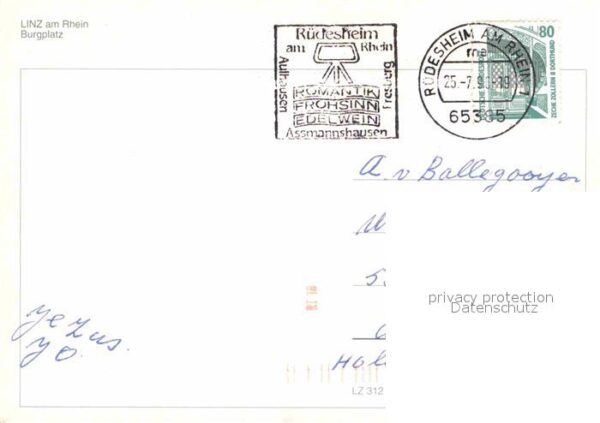 LINZ am Rhein
Burgplatz
Rüdesheim
am Rhein
Aulhausen
Presberg
ROMANTIK
FROHSINN
EDELWEIN
Assmannshausen
RÜDESHEIM AM RHEIN 1
25.-7.9
65385
80
ZECHE ZOLLERN II DORTMUND
A. v Ballegooyen
privacy protection
Datenschutz
yezus.
yo.
Hol
LZ 312